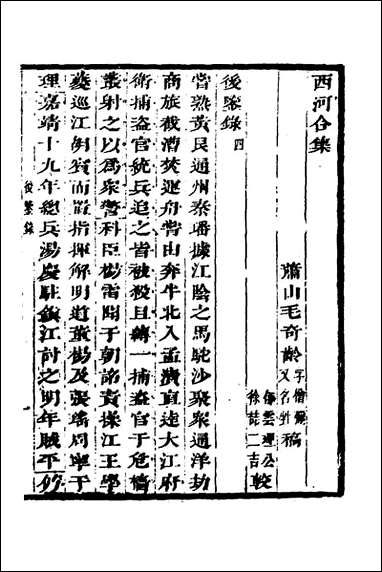 西河合集
蕭山毛奇齡字僧彌又名甡稿
徐喆二吉較
後鑒錄四
嘗熟黃艮通州秦璠據江陰之馬駝沙聚衆通洋刼
商旅截漕焚運舟嘗由奔牛北入孟瀆直達大江府
衛捕盜官統兵追之皆被殺且縛一捕盜官于危檣
叢射之以爲衆警科臣楊雷聞于朝詔責操江王學
夔巡江胡賓而置指揮解明道董楊及張瑤周寧于
理嘉靖十九年總兵湯慶駐鎮江討之明年賊平
後鑒錄